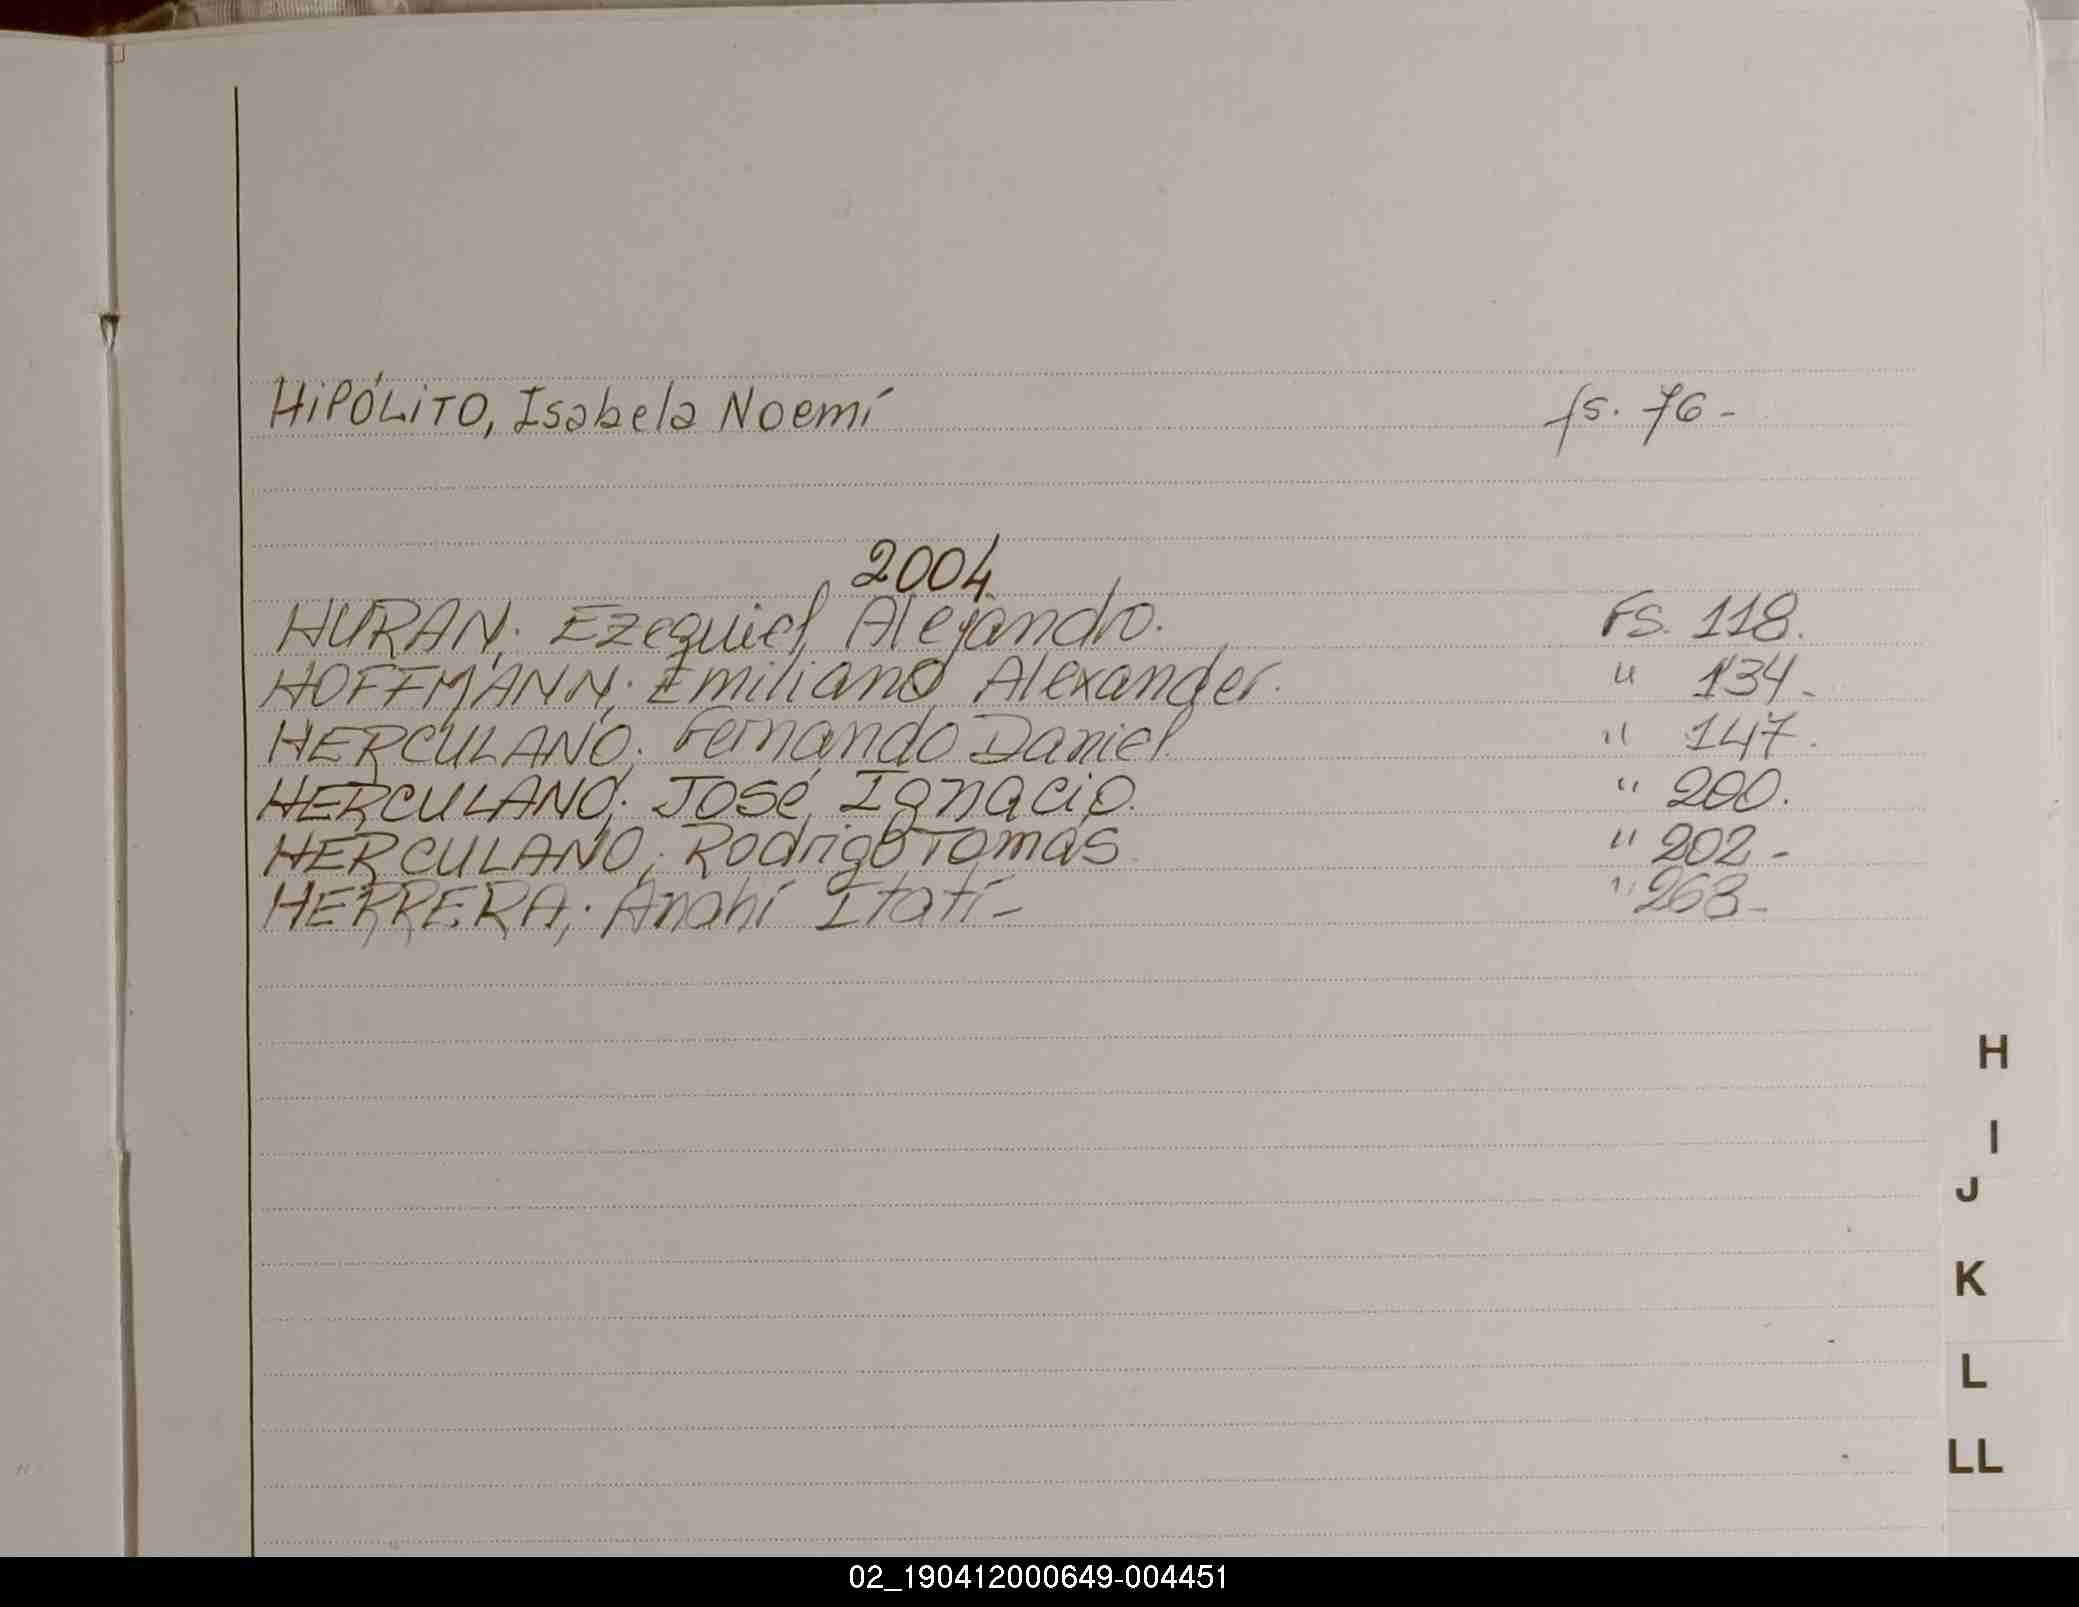 HIPÓLITO, Isabela Noemí fs. 76-
2004
HURAN; Ezequiel Alejandro. FS. 118.
HOFFMANN; Emiliano Alexander. " 134-
HERCULANO; Fernando Daniel. " 147.
HERCULANO; José Ignacio. " 200.
HERCULANO; Rodrigo Tomás " 202-
HERRERA; Anahí Itatí- " 263-
H
I
J
K
L
LL
02_190412000649-004451